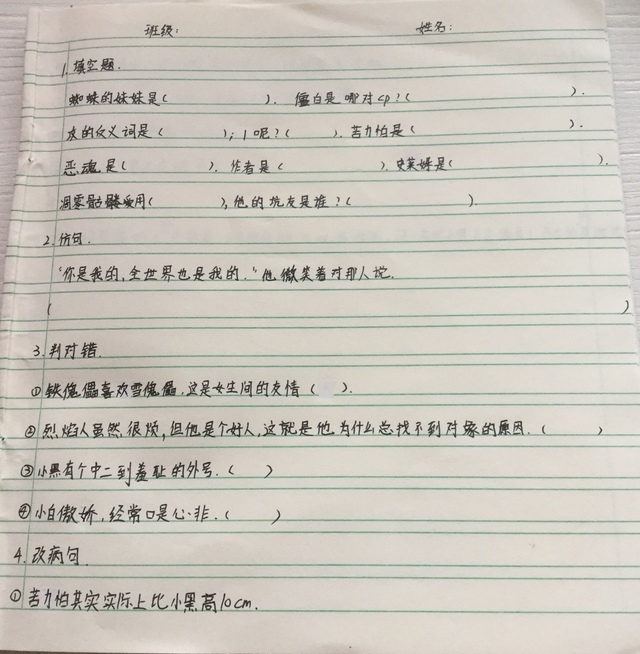 班级： 姓名：
1. 填空题.
蜘蛛的妹妹是（ ）. 僵白是哪对cp？（ ）.
灰的反义词是（ ）；1呢？（ ）. 苦力怕是（ ）.
恶魂是（ ）. 作者是（ ）. 史莱姆是（ ）.
凋零骷髅爱用（ ），他的坑友是谁？（ ）.
2. 仿句.
“你是我的，全世界也是我的.”他微笑着对那人说.
（ ）
3. 判对错.
①铁傀儡喜欢雪傀儡，这是女生间的友情（ ）.
②烈焰人虽然很烦，但他是个好人，这就是他为什么总找不到对象的原因.（ ）
③小黑有个中二到羞耻的外号.（ ）
④小白傲娇，经常口是心非.（ ）
4. 改病句.
①苦力怕其实实际上比小黑高10cm.